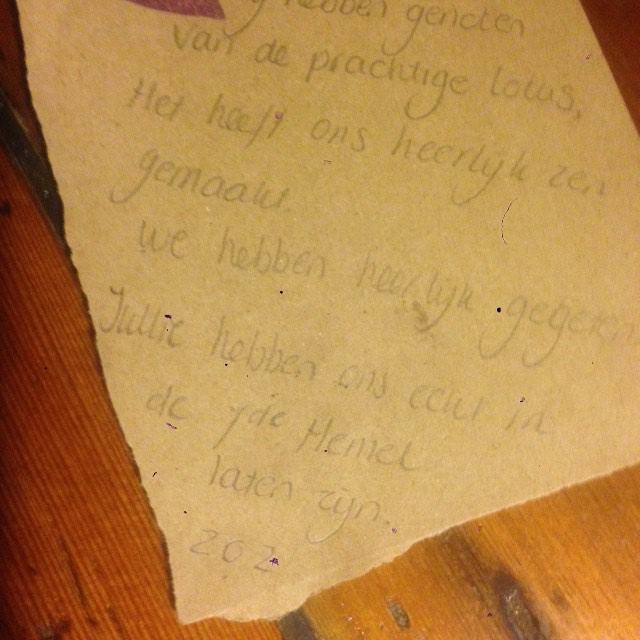 hebben genoten
van de prachtige lotus,
Het heeft ons heerlijk zen
gemaakt.
We hebben heerlijk gegeten
Jullie hebben ons echt in
de 7de Hemel
laten zijn.
202